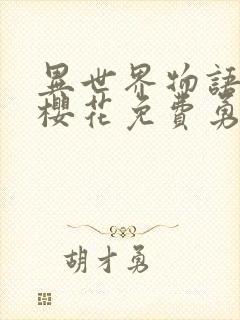 異世界物語
櫻花免費勇
胡才勇